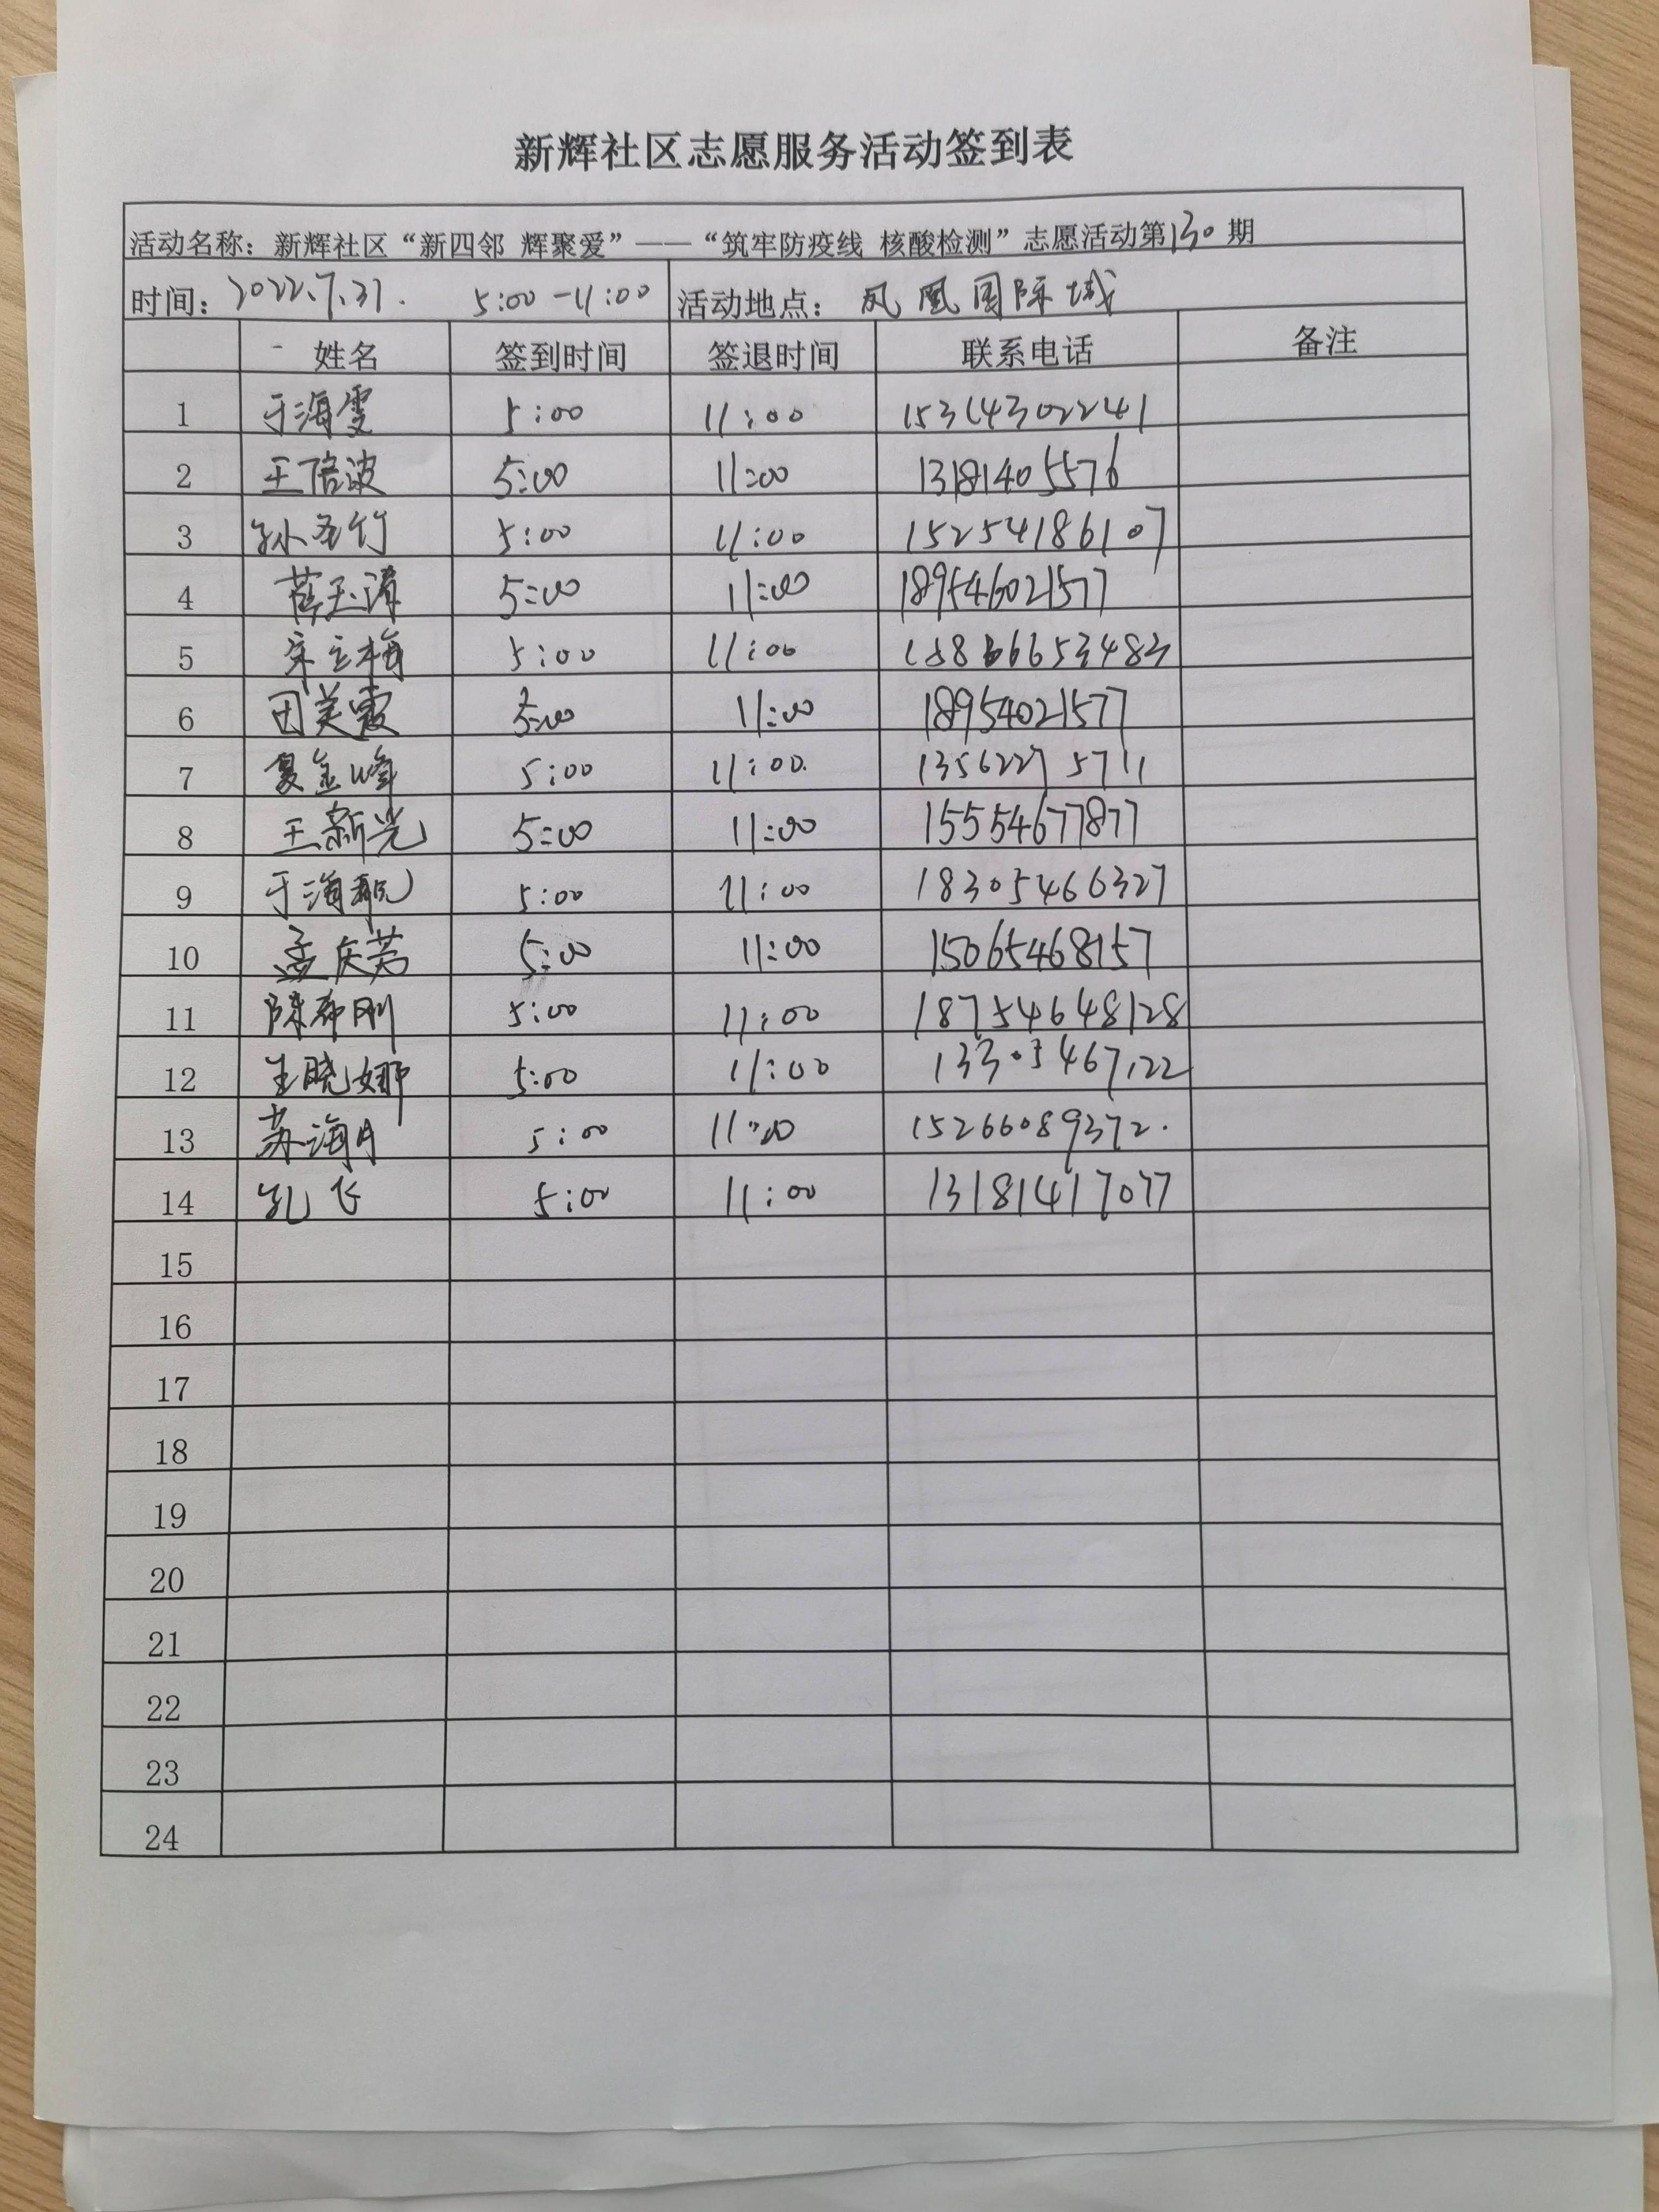 新辉社区志愿服务活动签到表
活动名称：新辉社区“新四邻 辉聚爱”——“筑牢防疫线 核酸检测”志愿活动第130期
时间：2022.7.31. 5:00-11:00 活动地点：凤凰国际城
姓名 签到时间 签退时间 联系电话 备注
1 于海雯 5:00 11:00 15314302241
2 王倍波 5:00 11:00 13181405576
3 孙圣竹 5:00 11:00 15254186107
4 薛玉涛 5:00 11:00 189546021577
5 宋立梅 5:00 11:00 18866653483
6 田美霞 5:00 11:00 18954021577
7 夏金峰 5:00 11:00. 13562275711
8 王新光 5:00 11:00 15554677877
9 于海靓 5:00 11:00 18305466327
10 孟庆芳 5:00 11:00 15065468157
11 陈希刚 5:00 11:00 18754648128
12 王晓娜 5:00 11:00 13305467122
13 苏海月 5:00 11:00 15266089372.
14 孔飞 5:00 11:00 13181417077
15
16
17
18
19
20
21
22
23
24